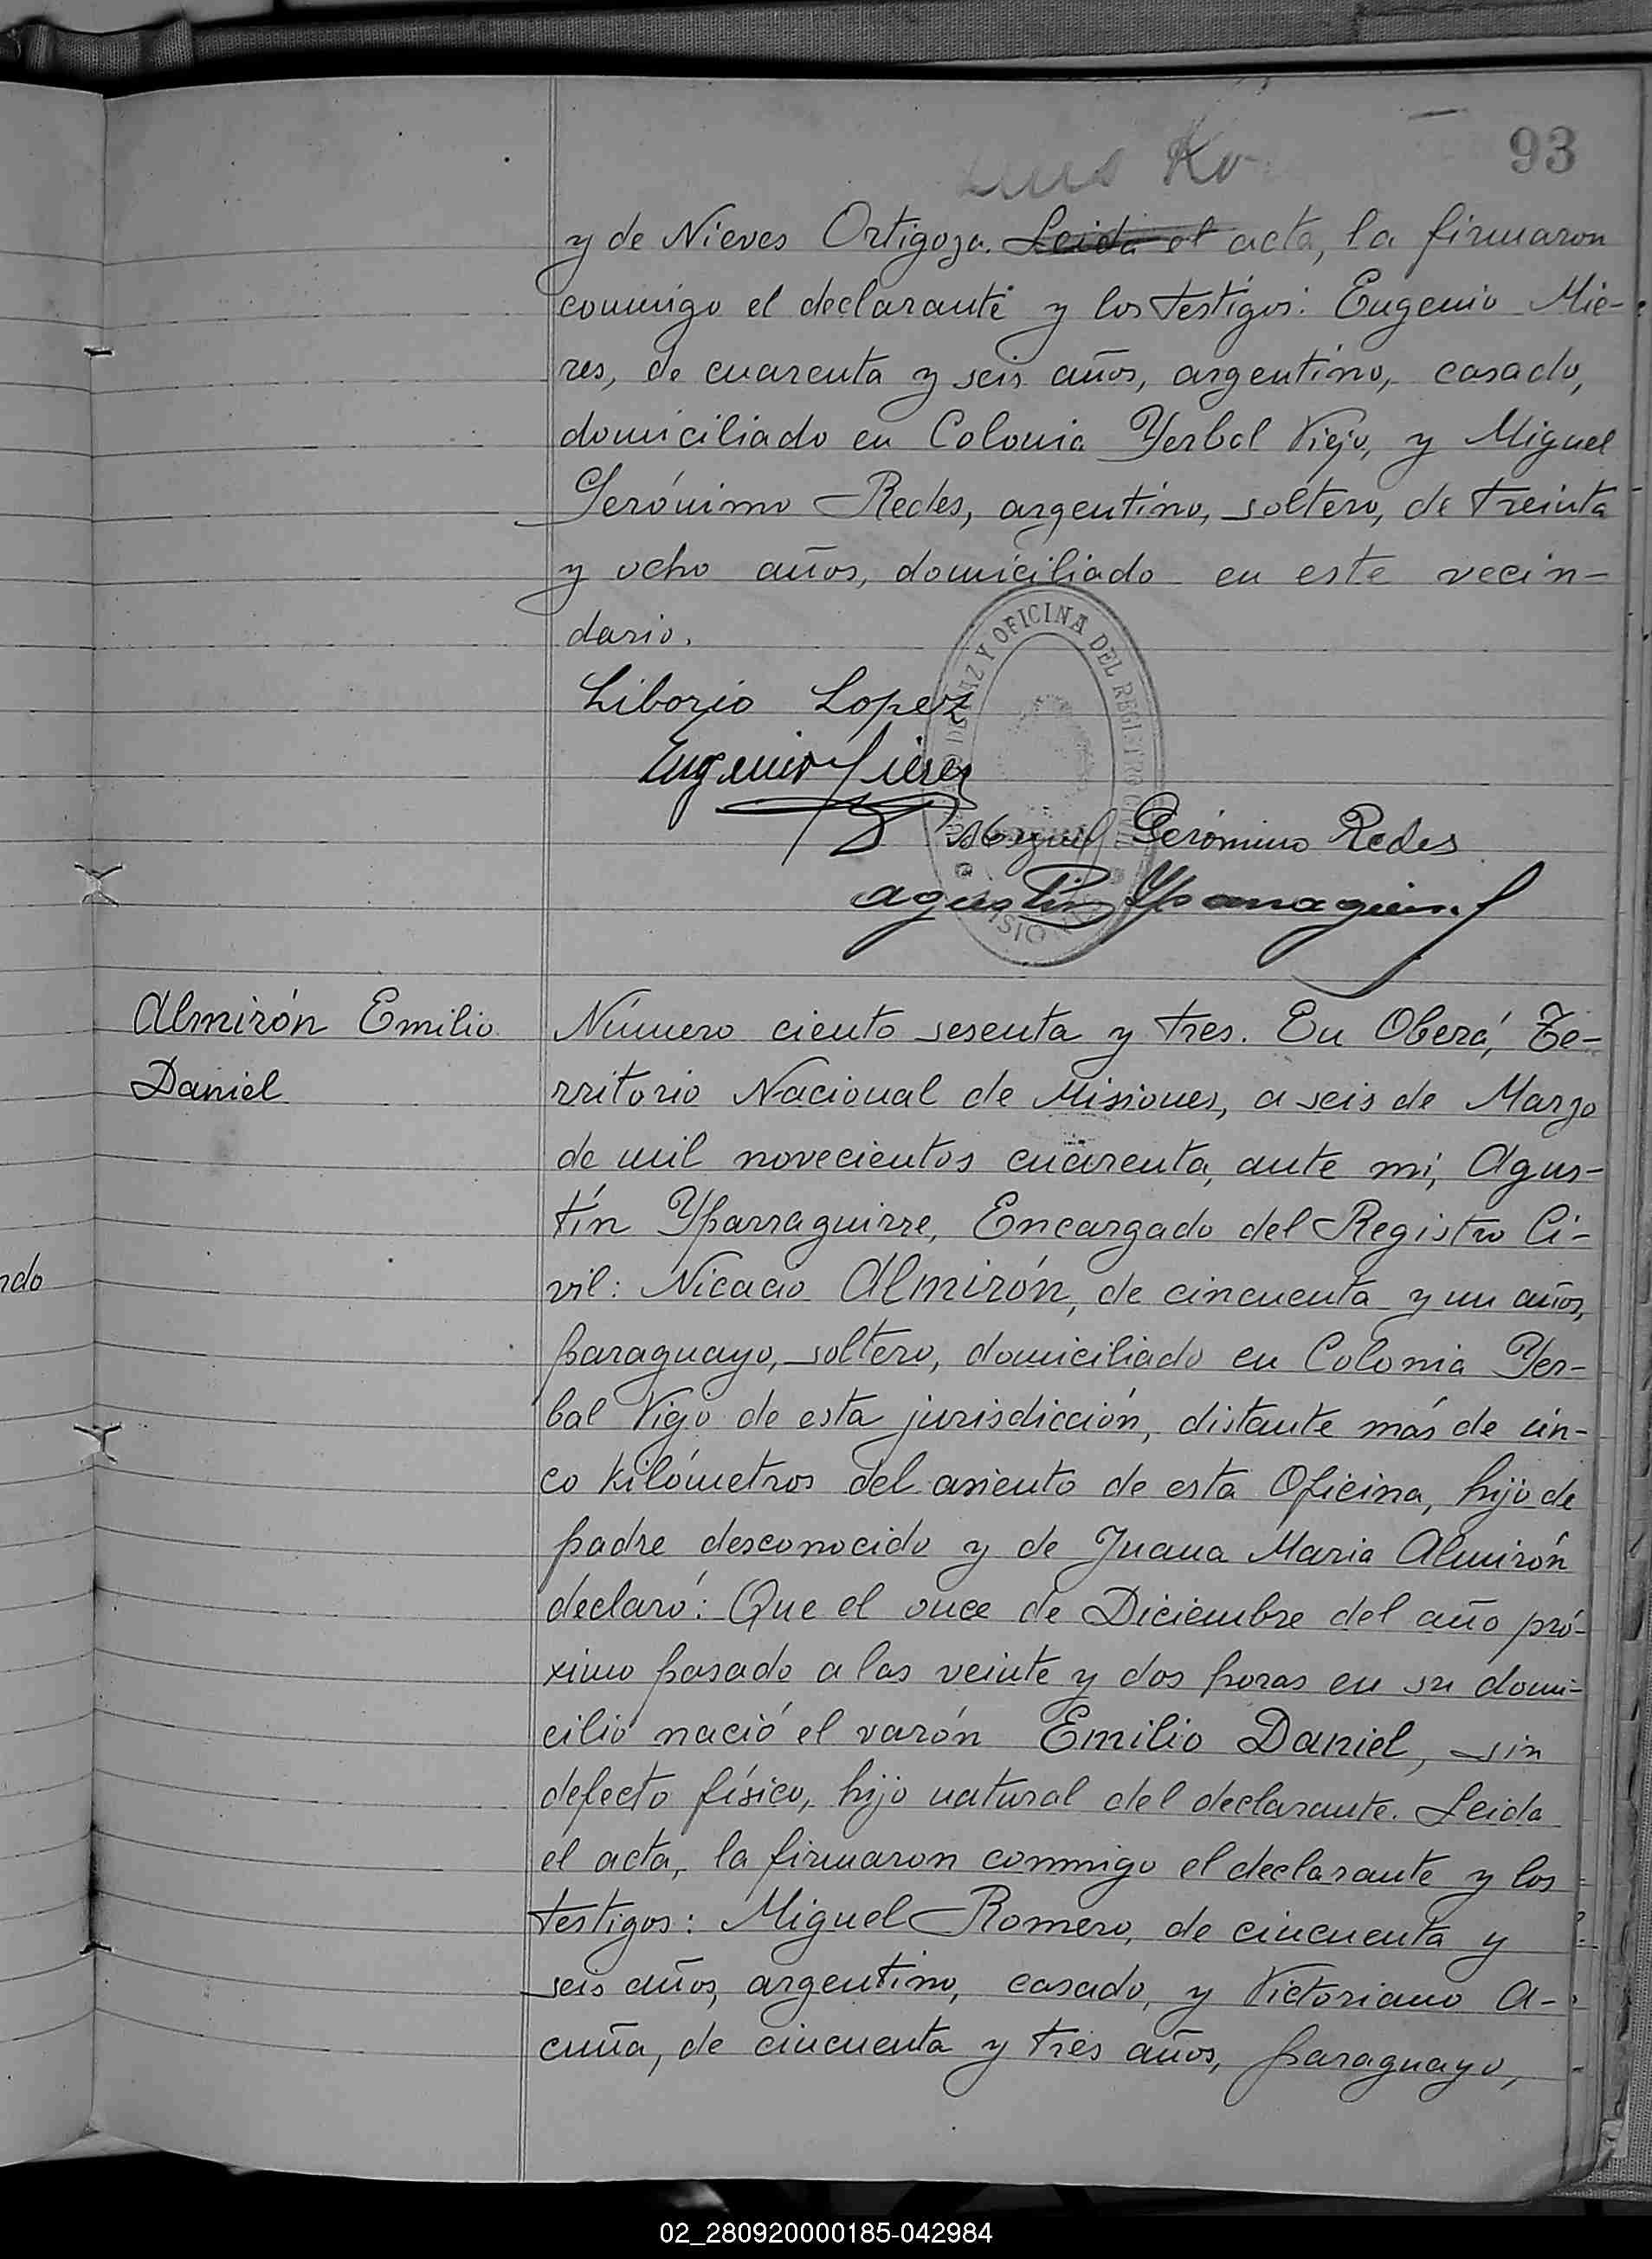 93
y de Nieves Ortigoza. Leida el acta, la firmaron
conmigo el declarante y los testigos: Eugenio Mie-
res, de cuarenta y seis años, argentino, casado,
domiciliado en Colonia Yerbal Viejo, y Miguel
Gerónimo Redes, argentino, soltero, de treinta
y ocho años, domiciliado en este vecin-
dario.
Liborio Lopez
Eugenio Mieres
Miguel Gerónimo Redes
Agustín Yparraguirre
DE PAZ Y OFICINA DEL REGISTRO CIVIL
Almirón Emilio
Daniel
Número ciento sesenta y tres. En Oberá, Te-
rritorio Nacional de Misiones, a seis de Marzo
de mil novecientos cuarenta, ante mi, Agus-
tín Yparraguirre, Encargado del Registro Ci-
vil: Nicacio Almirón, de cincuenta y un años,
paraguayo, soltero, domiciliado en Colonia Yer-
bal Viejo de esta jurisdicción, distante más de cin-
co kilómetros del asiento de esta Oficina, hijo de
padre desconocido y de Juana Maria Almirón
declaró: Que el once de Diciembre del año pró-
ximo pasado a las veinte y dos horas en su domi-
cilio nació el varón Emilio Daniel, sin
defecto físico, hijo natural del declarante. Leida
el acta, la firmaron conmigo el declarante y los
testigos: Miguel Romero, de cincuenta y
seis años, argentino, casado, y Victoriano A-
cuña, de cincuenta y tres años, paraguayo,
ndo
02_280920000185-042984